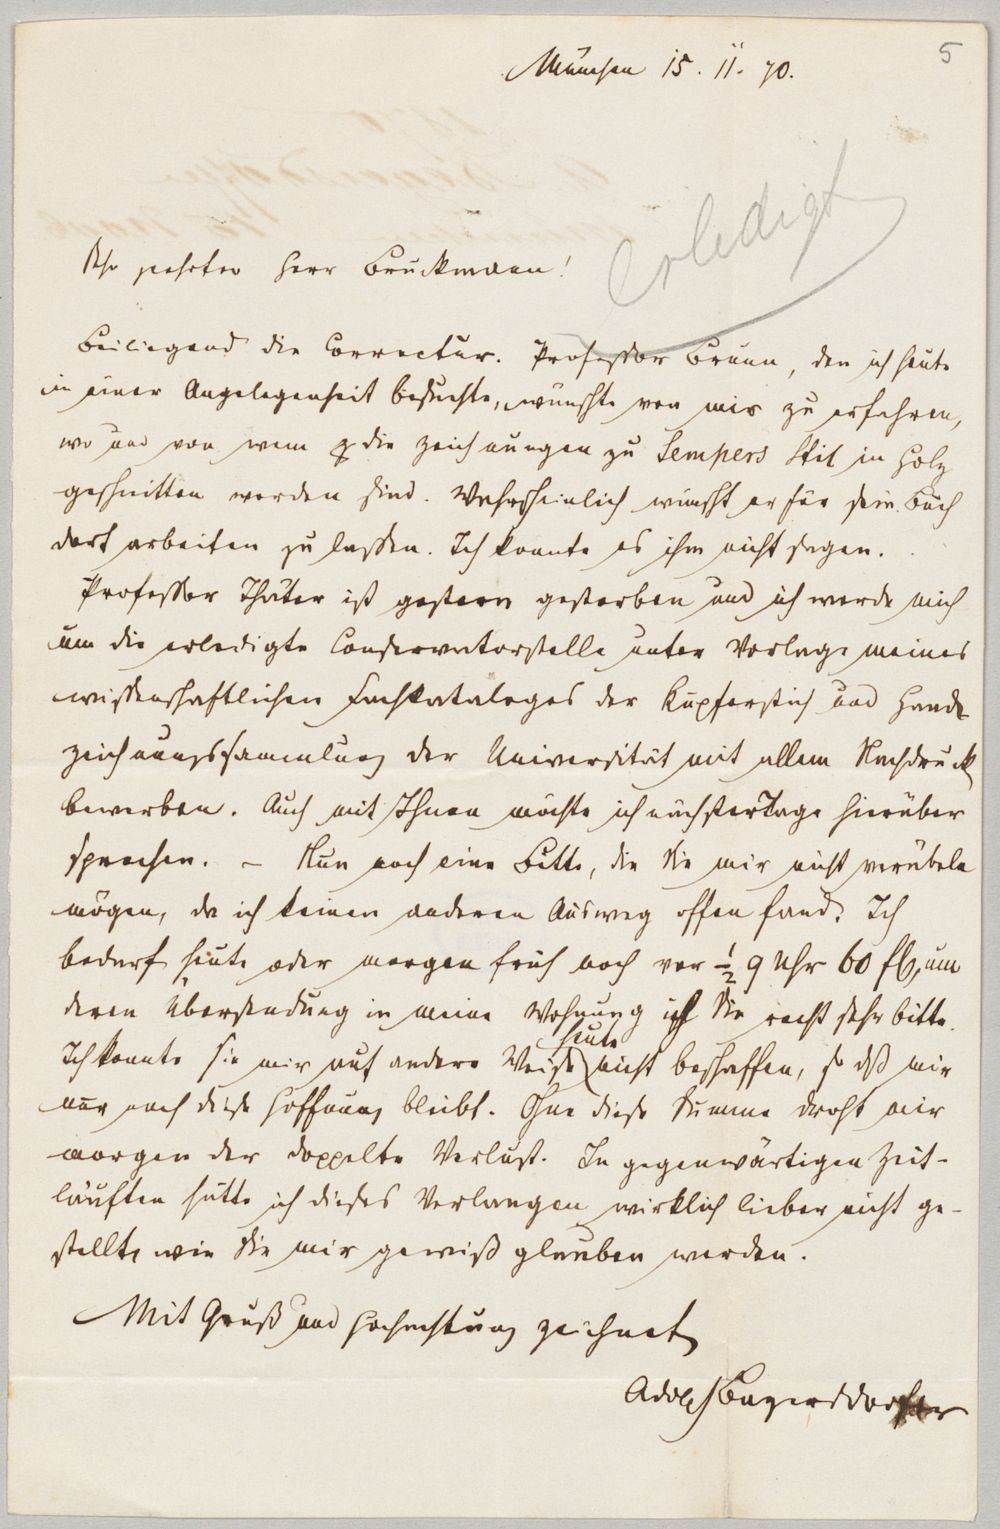 5
München 15. 11. 70.
erledigt
Sehr geehrter Herr Bruckmann!
Beiliegend die Correctur. Professor Brunn, den ich heute
in einer Angelegenheit besuchte, wünschte von mir zu erfahren,
wo und von wem die Zeichnungen zu Sempers Stil in Holz
geschnitten worden sind. Wahrscheinlich wünscht er für sein Buch
dort arbeiten zu lassen. Ich konnte es ihm nicht sagen.
Professor Thäter ist gestern gestorben und ich werde mich
um die erledigte Conservatorstelle unter Vorlage meines
wissenschaftlichen Fachkataloges der Kupferstich und Hand-
zeichnungssammlung der Universität mit allem Nachdruck
bewerben. Auch mit Ihnen möchte ich nächster Tage hierüber
sprechen. – Nun noch eine Bitte, die Sie mir nicht verübeln
mögen, da ich keinen anderen Ausweg offen fand. Ich
bedarf heute oder morgen früh noch vor ½ 9 Uhr 60 fl, um
deren Übersendung in meine Wohnung ich Sie recht sehr bitte.
Ich konnte sie mir auf andere Weise heute nicht beschaffen, so daß mir
nur noch diese Hoffnung bleibt. Ohne diese Summe droht mir
morgen der doppelte Verlust. In gegenwärtigen Zeit-
läuften hätte ich dieses Verlangen wirklich lieber nicht ge-
stellt, wie Sie mir gewiß glauben werden.
Mit Gruß und Hochachtung zeichnet
Adolf Bayersdorfer